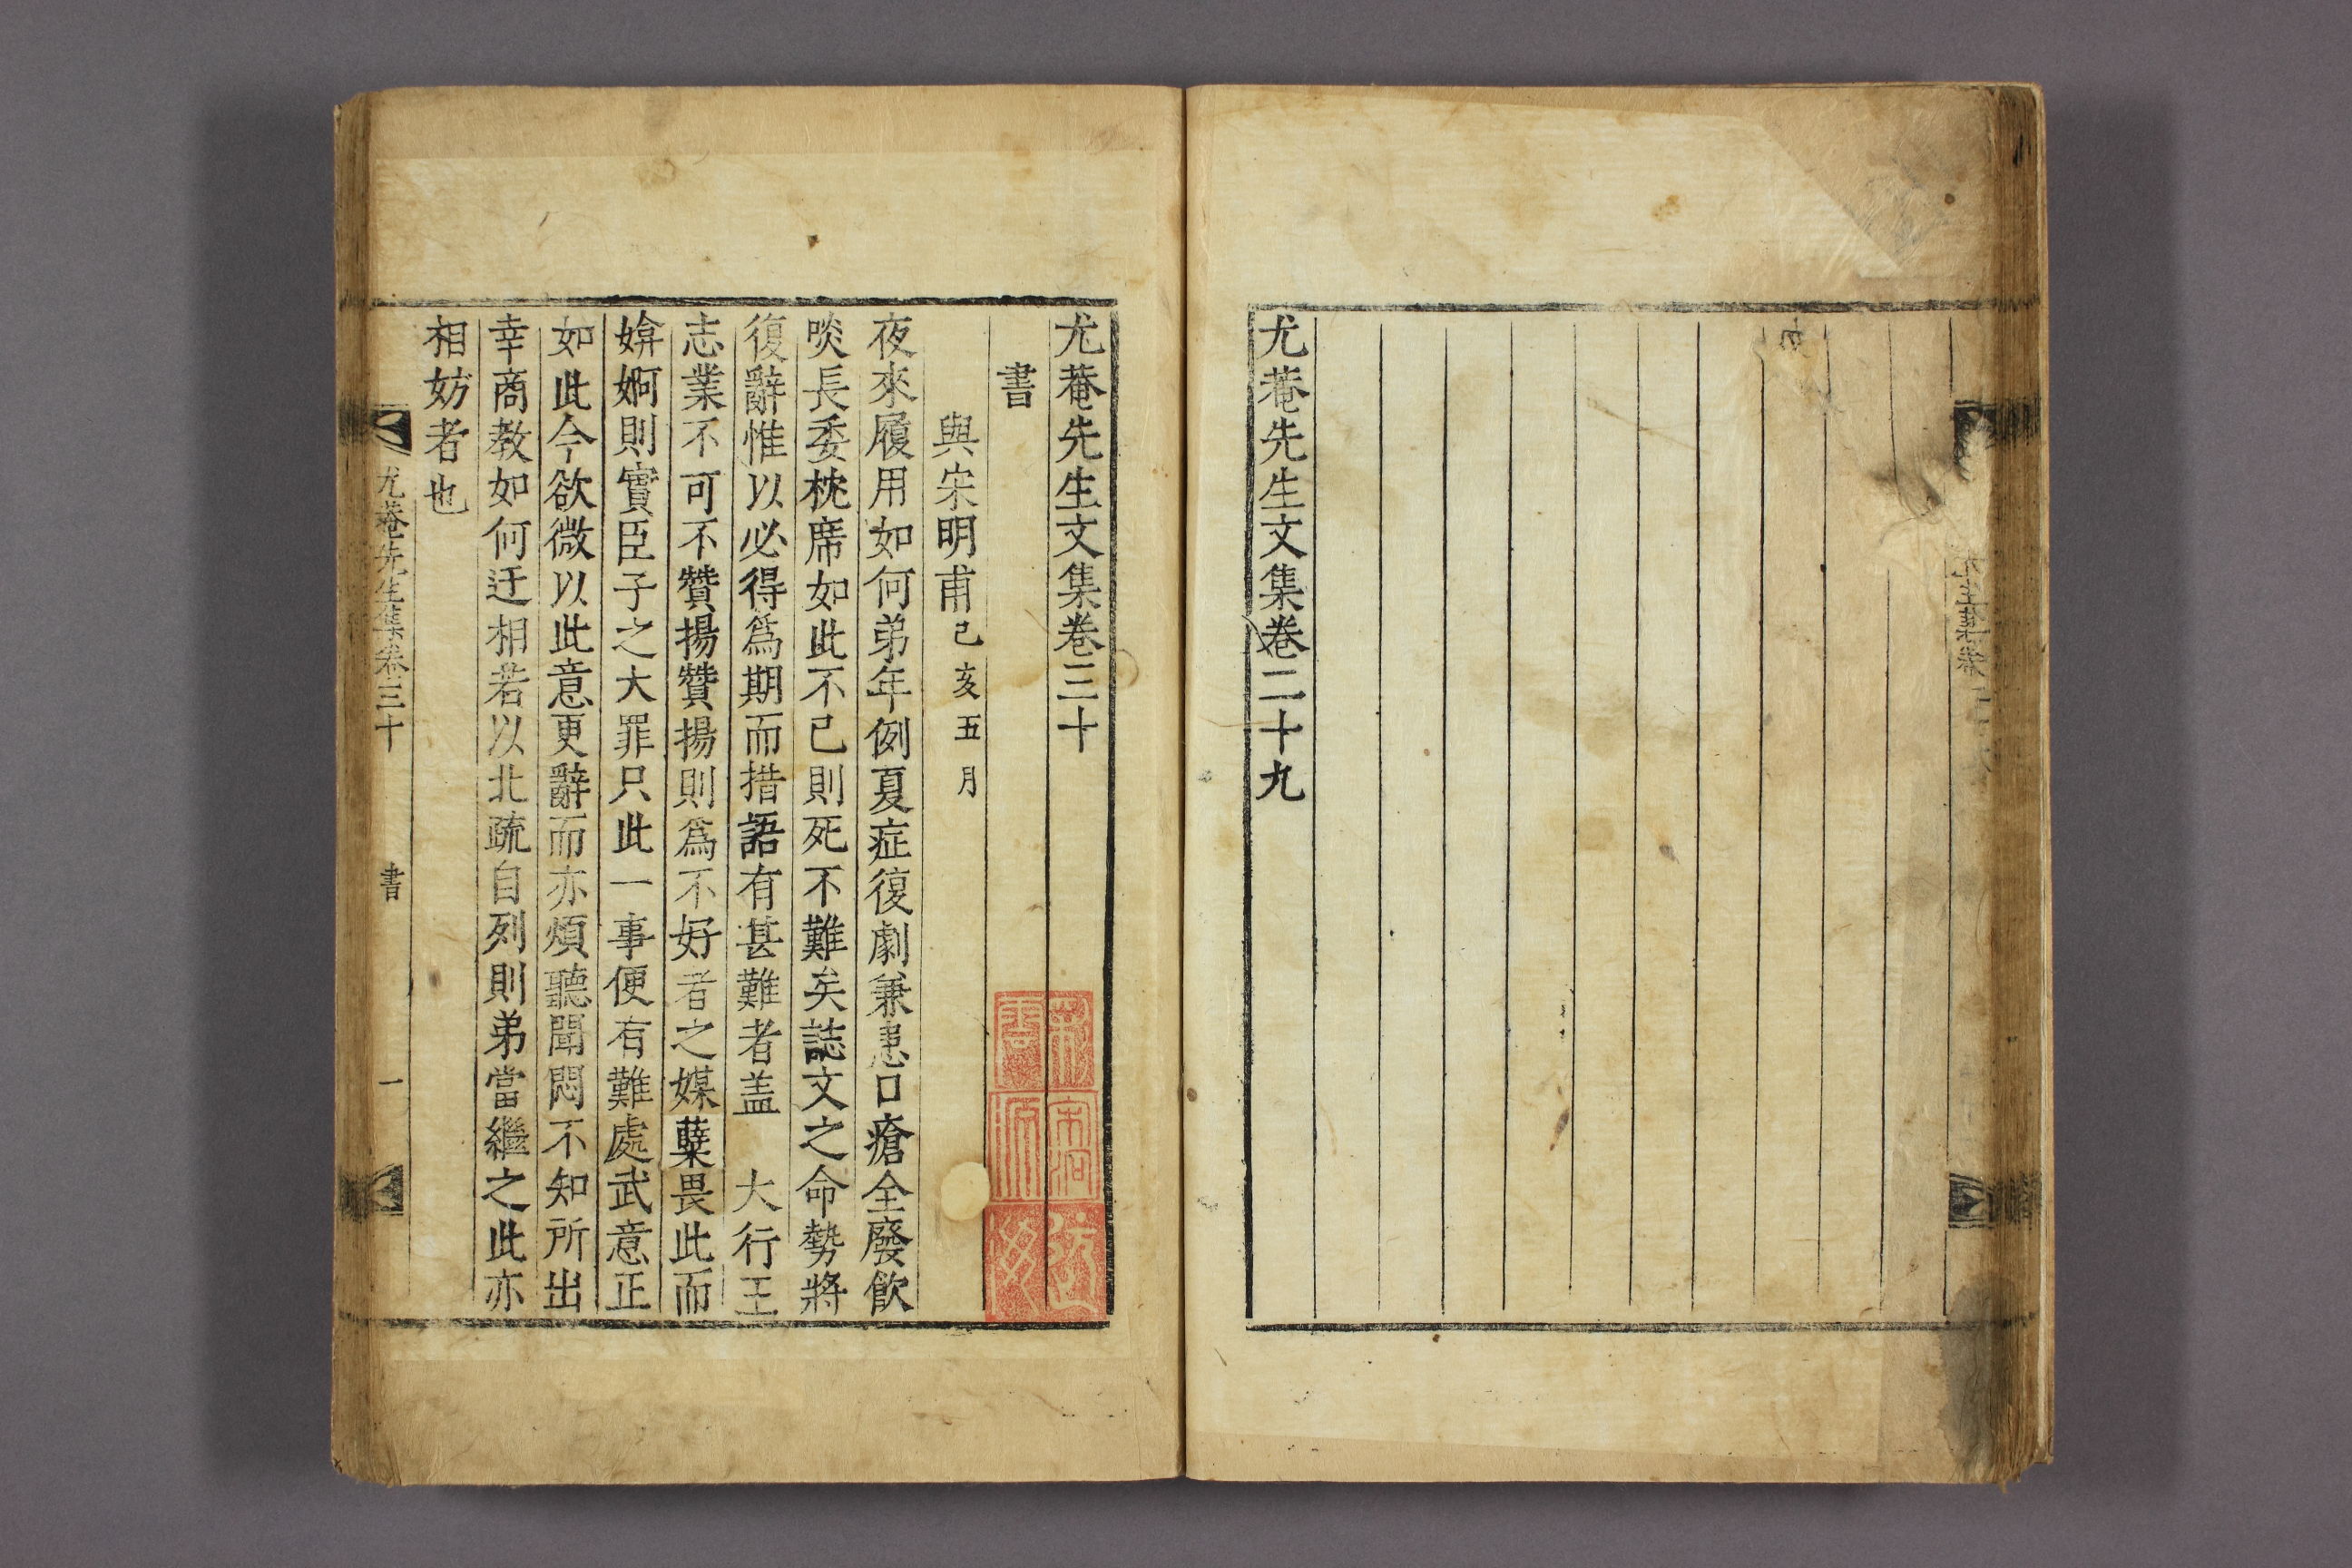 尤菴先生文集卷二十九
尤菴先生文集卷三十
書
與宋明甫己亥五月
夜來履用如何弟年例夏症復劇兼患口瘡全廢飮
啖長委枕席如此不已則死不難矣誌文之命勢將
復辭惟以必得爲期而措語有甚難者盖　大行王
志業不可不贊揚贊揚則爲不好者之媒蘖畏此而
媕婀則實臣子之大罪只此一事便有難處武意正
如此今欲微以此意更辭而亦煩聽聞悶不知所出
幸商教如何迂相若以北疏自列則弟當繼之此亦
相妨者也
尤菴先生集卷三十　書　一